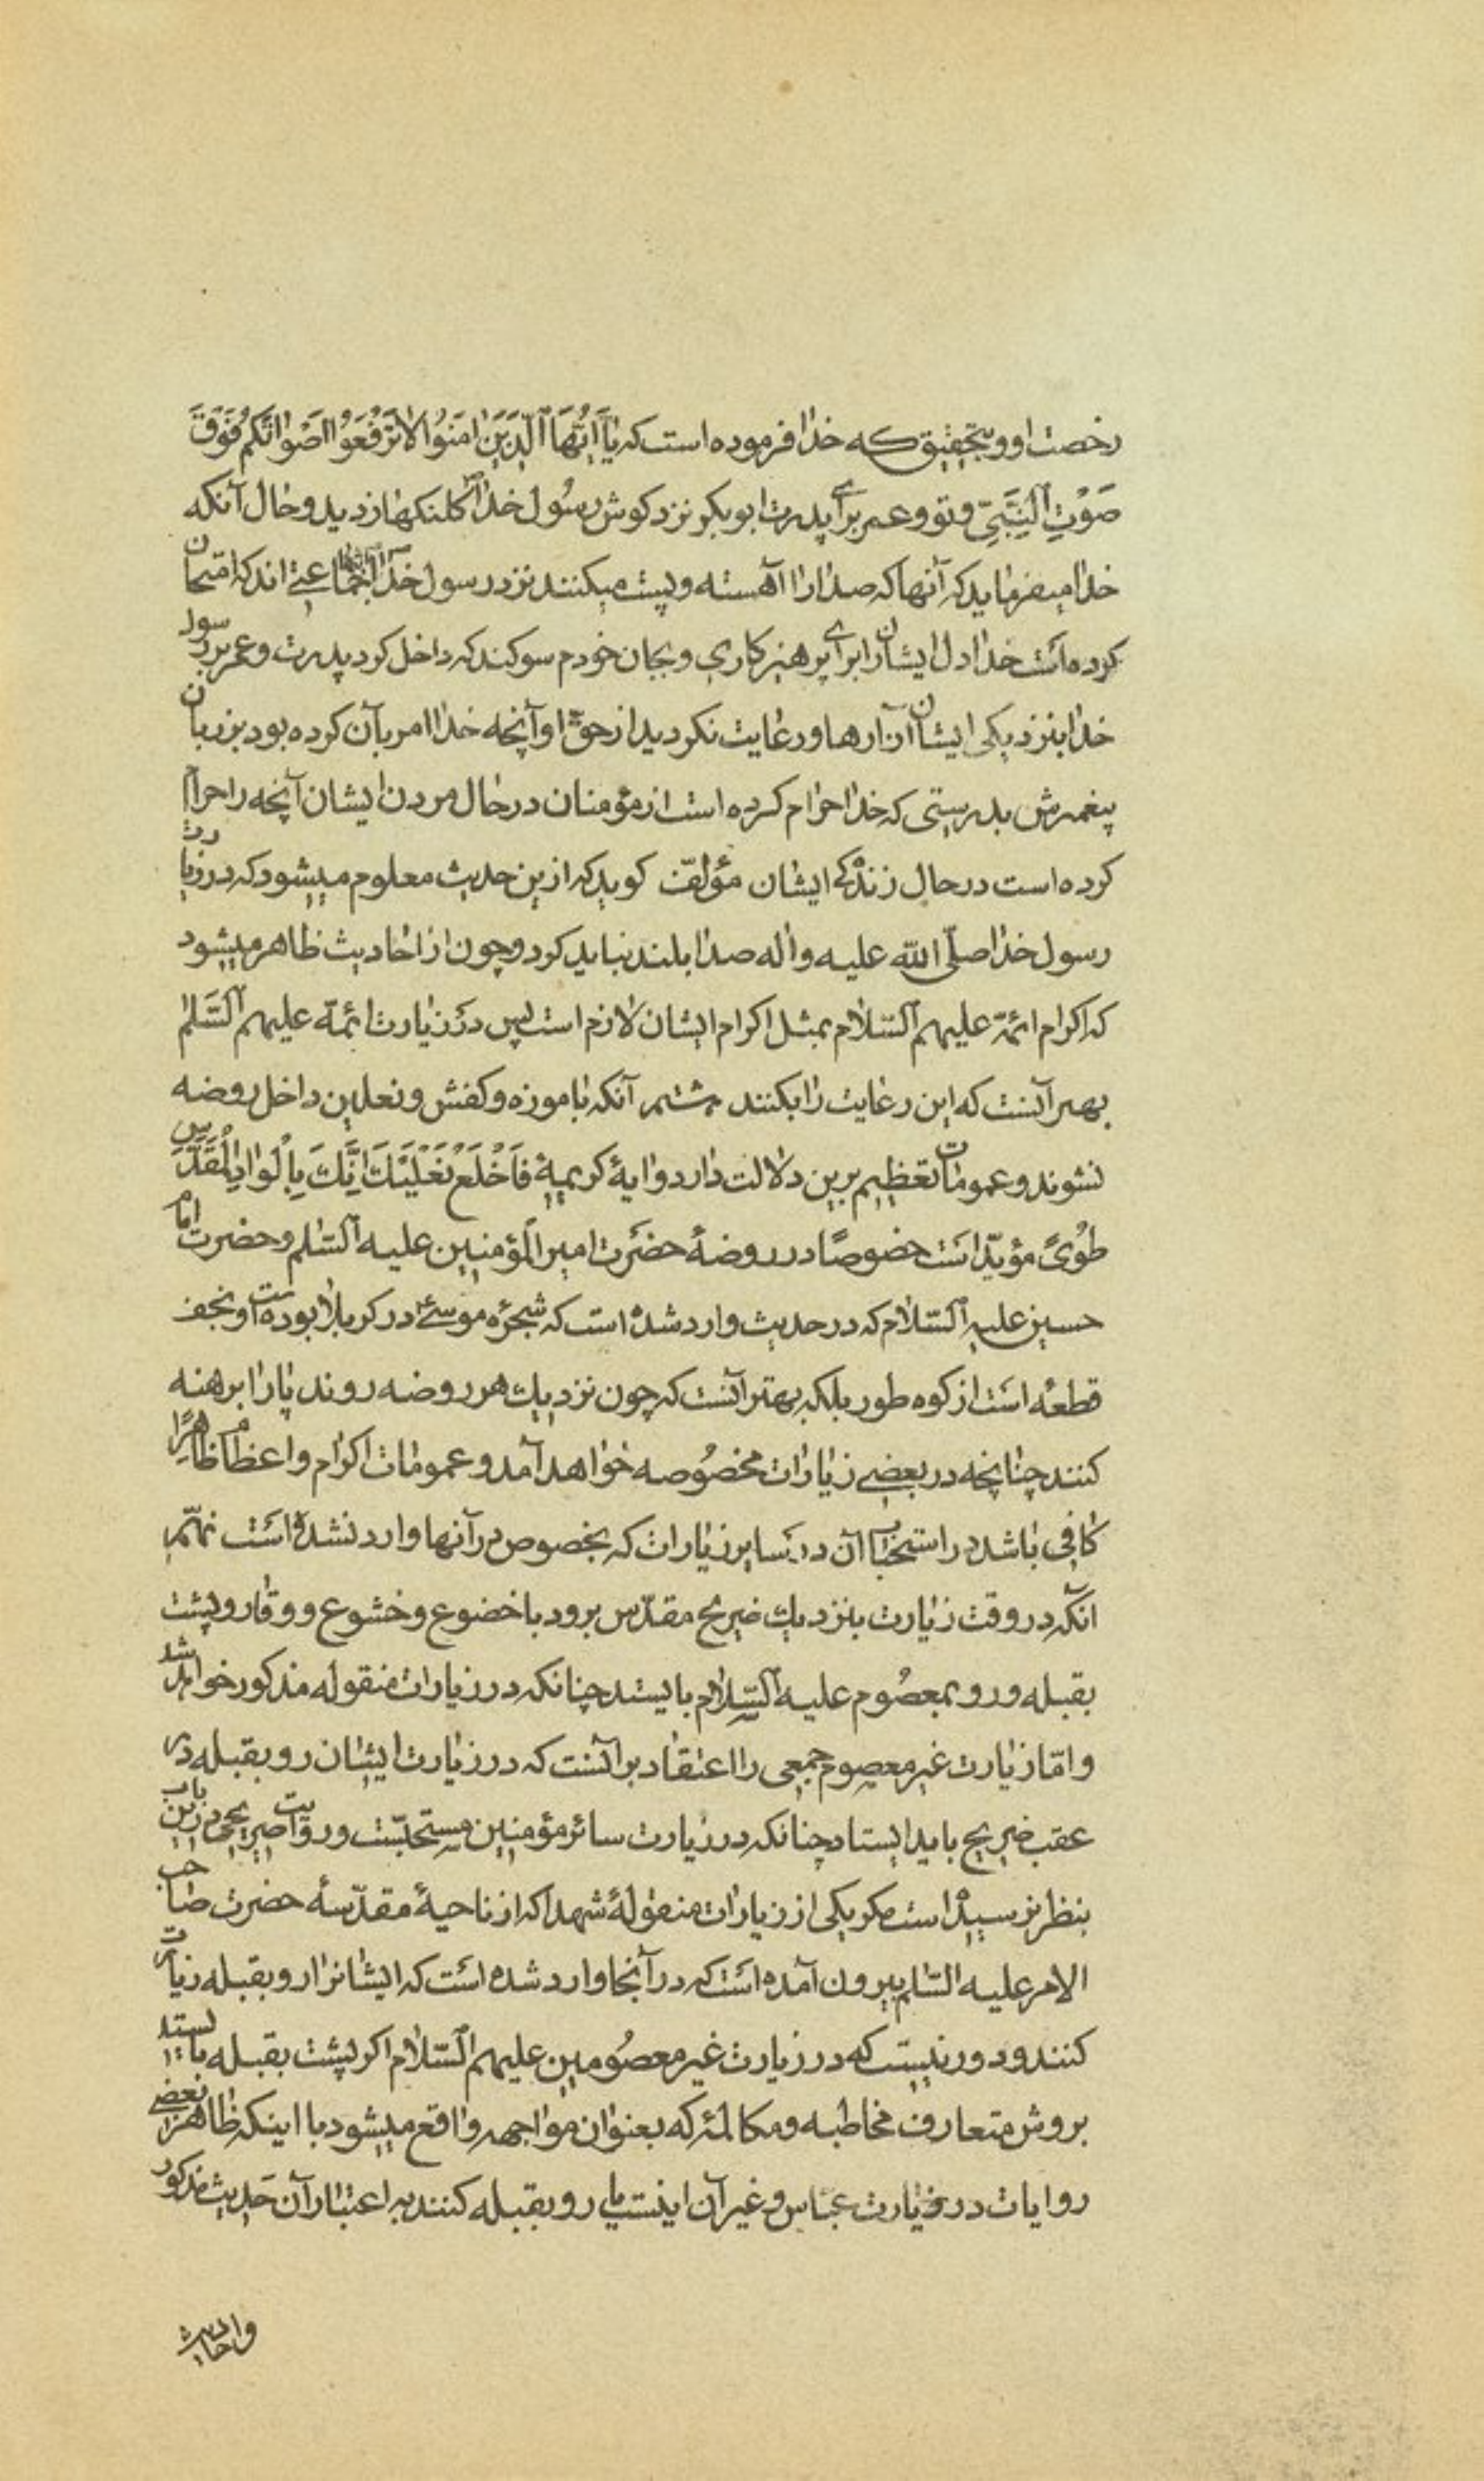 رخصت او و بتحقیق که خدا فرموده است که یا ایها الذین امنوا لا ترفعوا اصواتکم فوق
صوت النبی و تو و عمر برای پدرت ابو بکر نزد کوش رسول خدا کلنکها زدید و حال آنکه
خدا میفرماید که آنها که صدارا آهسته و پست میکنند نزد رسول خدا جماعتی اند که امتحان
کرده است خدا دل ایشانرا برای پرهیزکاری و بجان خودم سوکند که داخل کرد پدرت و عمر بر رسول
خدا بنزدیکی ایشان آزارها و رعایت نکردید از حق او آنچه خدا امر بآن کرده بود بر زبان
پیغمبرش بدرستی که خدا حرام کرده است از مؤمنان در حال مردن ایشان آنچه را حرام
کرده است در حال زندکی ایشان مؤلف کوید که ازین حدیث معلوم میشود که در زیارت
رسول خدا صلی الله علیه واله صدا بلند نباید کرد و چون از احادیث ظاهر میشود
که اکرام ائمة علیهم السلام بمثل اکرام ایشان لازم است پس در زیارت ائمة علیهم السلم
بهتر آنست که این رعایت را بکنند هشتم آنکه با موزه و کفش و نعلین داخل روضه
نشوند و عمومات تعظیم برین دلالت دارد و ایهٔ کریمهٔ فاخلع نعلیک انک بالواد المقدس
طوًی مؤید است خصوصًا در روضهٔ حضرت امیر المؤمنین علیه السلم و حضرت امام
حسین علیه السلام که در حدیث وارد شده است که شجرهٔ موسی در کربلا بوده است و نجف
قطعهٔ است از کوه طور بلکه بهتر آنست که چون نزدیک هر روضه روند پارا برهنه
کنند چنانچه در بعضی زیارات مخصوصه خواهد آمد و عمومات اکرام و اعظام ظاهرًا
کافی باشد در استحباب آن در سایر زیارات که بخصوص در آنها وارد نشده است نهم
آنکه در وقت زیارت بنزدیک ضریح مقدس برود با خضوع و خشوع و وقار و پشت
بقبله و رو بمعصوم علیه السلام بایستد چنانکه در زیارات منقوله مذکور خواهد شد
و اما زیارت غیر معصوم جمعی را اعتقاد بر آنست که در زیارت ایشان رو بقبله در
عقب ضریح باید ایستاد چنانکه در زیارت سائر مؤمنین مستحبّست و روایت صریحی درین باب
بنظر نرسیده است مکر یکی از زیارات منقولهٔ شهدا که از ناحیهٔ مقدّسهٔ حضرت صاحب
الامر علیه السلم بیرون آمده است که در آنجا وارد شده است که ایشانرا رو بقبله زیارت
کنند و دور نیست که در زیارت غیر معصومین علیهم السلام اکر پشت بقبله بایستد
بروش متعارف مخاطبه و مکالمهٔ که بعنوان مواجهه واقع میشود با اینکه ظاهر بعضی
روایات در زیارت عباس و غیر آن اینست یا رو بقبله کنند به اعتبار آن حدیث مذکور
واحادیث